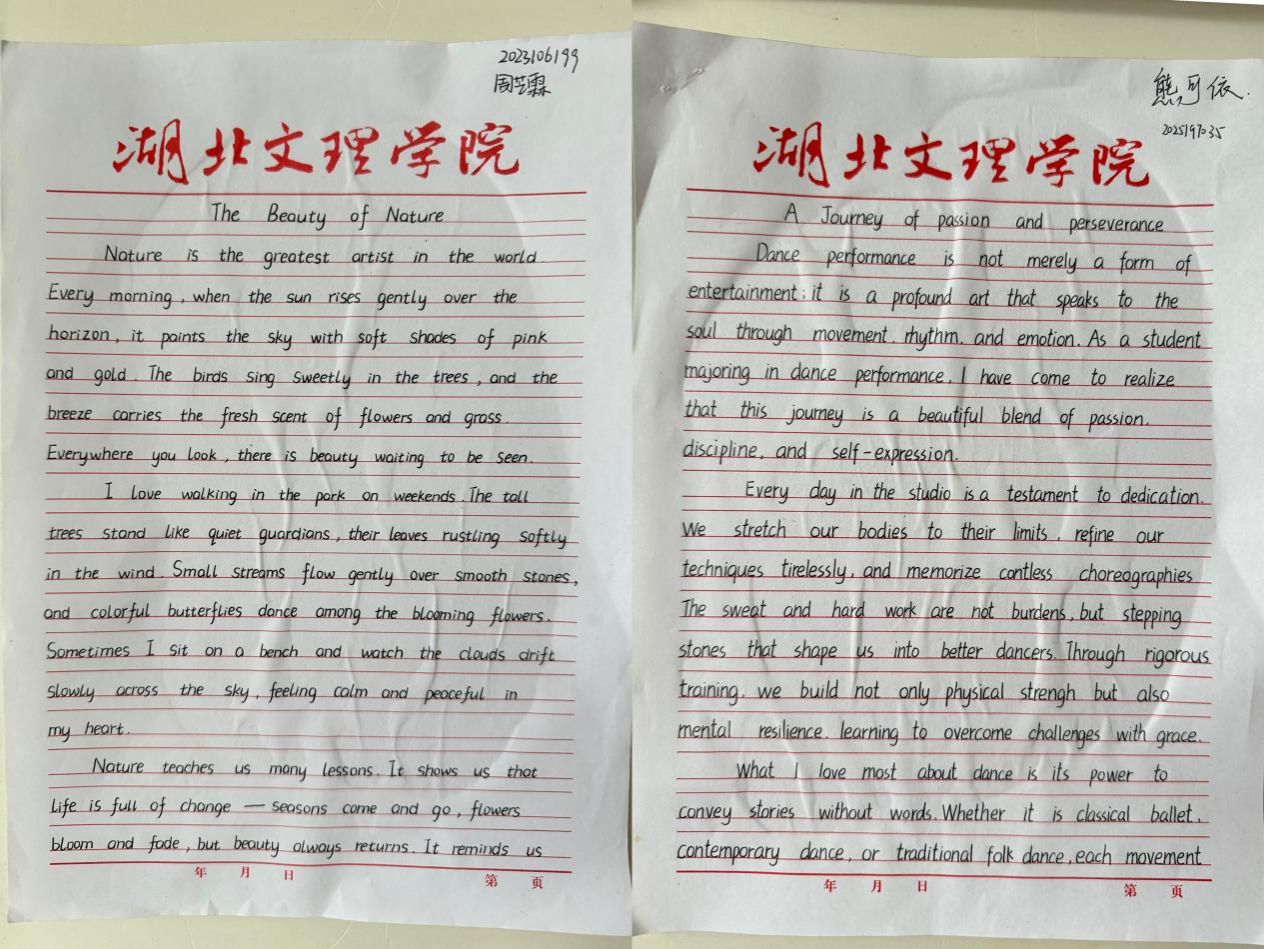 2023106199
周芷霖
湖北文理学院
The Beauty of Nature
Nature is the greatest artist in the world
Every morning, when the sun rises gently over the
horizon, it paints the sky with soft shades of pink
and gold. The birds sing sweetly in the trees, and the
breeze carries the fresh scent of flowers and grass.
Everywhere you look, there is beauty waiting to be seen.
I love walking in the park on weekends. The tall
trees stand like quiet guardians, their leaves rustling softly
in the wind. Small streams flow gently over smooth stones,
and colorful butterflies dance among the blooming flowers.
Sometimes I sit on a bench and watch the clouds drift
slowly across the sky, feeling calm and peaceful in
my heart.
Nature teaches us many lessons. It shows us that
life is full of change — seasons come and go, flowers
bloom and fade, but beauty always returns. It reminds us
年 月 日
第 页
熊 依.
2025197035
湖北文理学院
A Journey of passion and perseverance
Dance performance is not merely a form of
entertainment; it is a profound art that speaks to the
soul through movement, rhythm, and emotion. As a student
majoring in dance performance, I have come to realize
that this journey is a beautiful blend of passion,
discipline, and self-expression.
Every day in the studio is a testament to dedication.
We stretch our bodies to their limits, refine our
techniques tirelessly, and memorize contless choreographies
The sweat and hard work are not burdens, but stepping
stones that shape us into better dancers. Through rigorous
training, we build not only physical strengh but also
mental resilience, learning to overcome challenges with grace.
What I love most about dance is its power to
convey stories without words. Whether it is classical ballet,
contemporary dance, or traditional folk dance, each movement
年 月 日
第 页